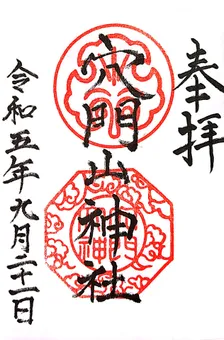 奉拝
穴門山神社
令和五年九月二十一日